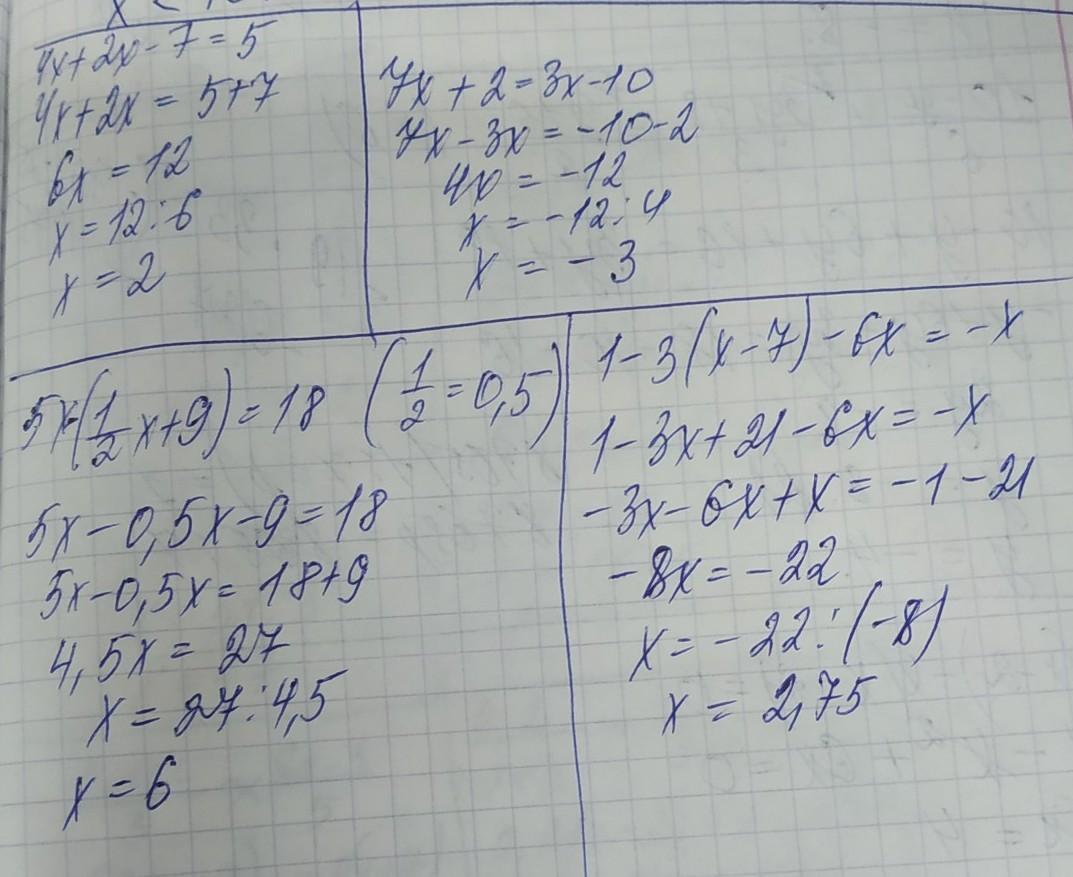 4x+2x-7=5
4x+2x=5+7
6x=12
x=12:6
x=2
7x+2=3x-10
7x-3x=-10-2
4x=-12
x=-12:4
x=-3
5x-(1/2x+9)=18 (1/2=0,5)
5x-0,5x-9=18
5x-0,5x=18+9
4,5x=27
x=27:4,5
x=6
1-3(x-7)-6x=-x
1-3x+21-6x=-x
-3x-6x+x=-1-21
-8x=-22
x=-22:(-8)
x=2,75